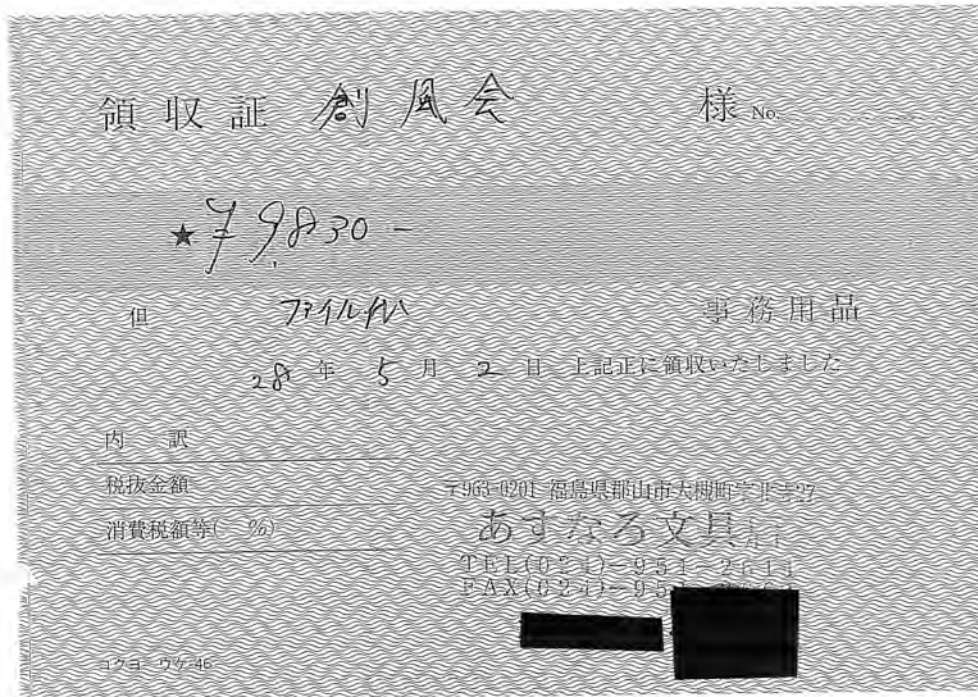 領収証 創風会 様 No.
★ ¥9,830-
但 ファイル代 事務用品
28年 5月 2日 上記正に領収いたしました
内 訳
税抜金額
消費税額等( %)
〒963-0201 福島県郡山市大槻町字北寺27
あすなろ文具
TEL(024)-951-2614
FAX(024)-951-
コクヨ ウケ-46